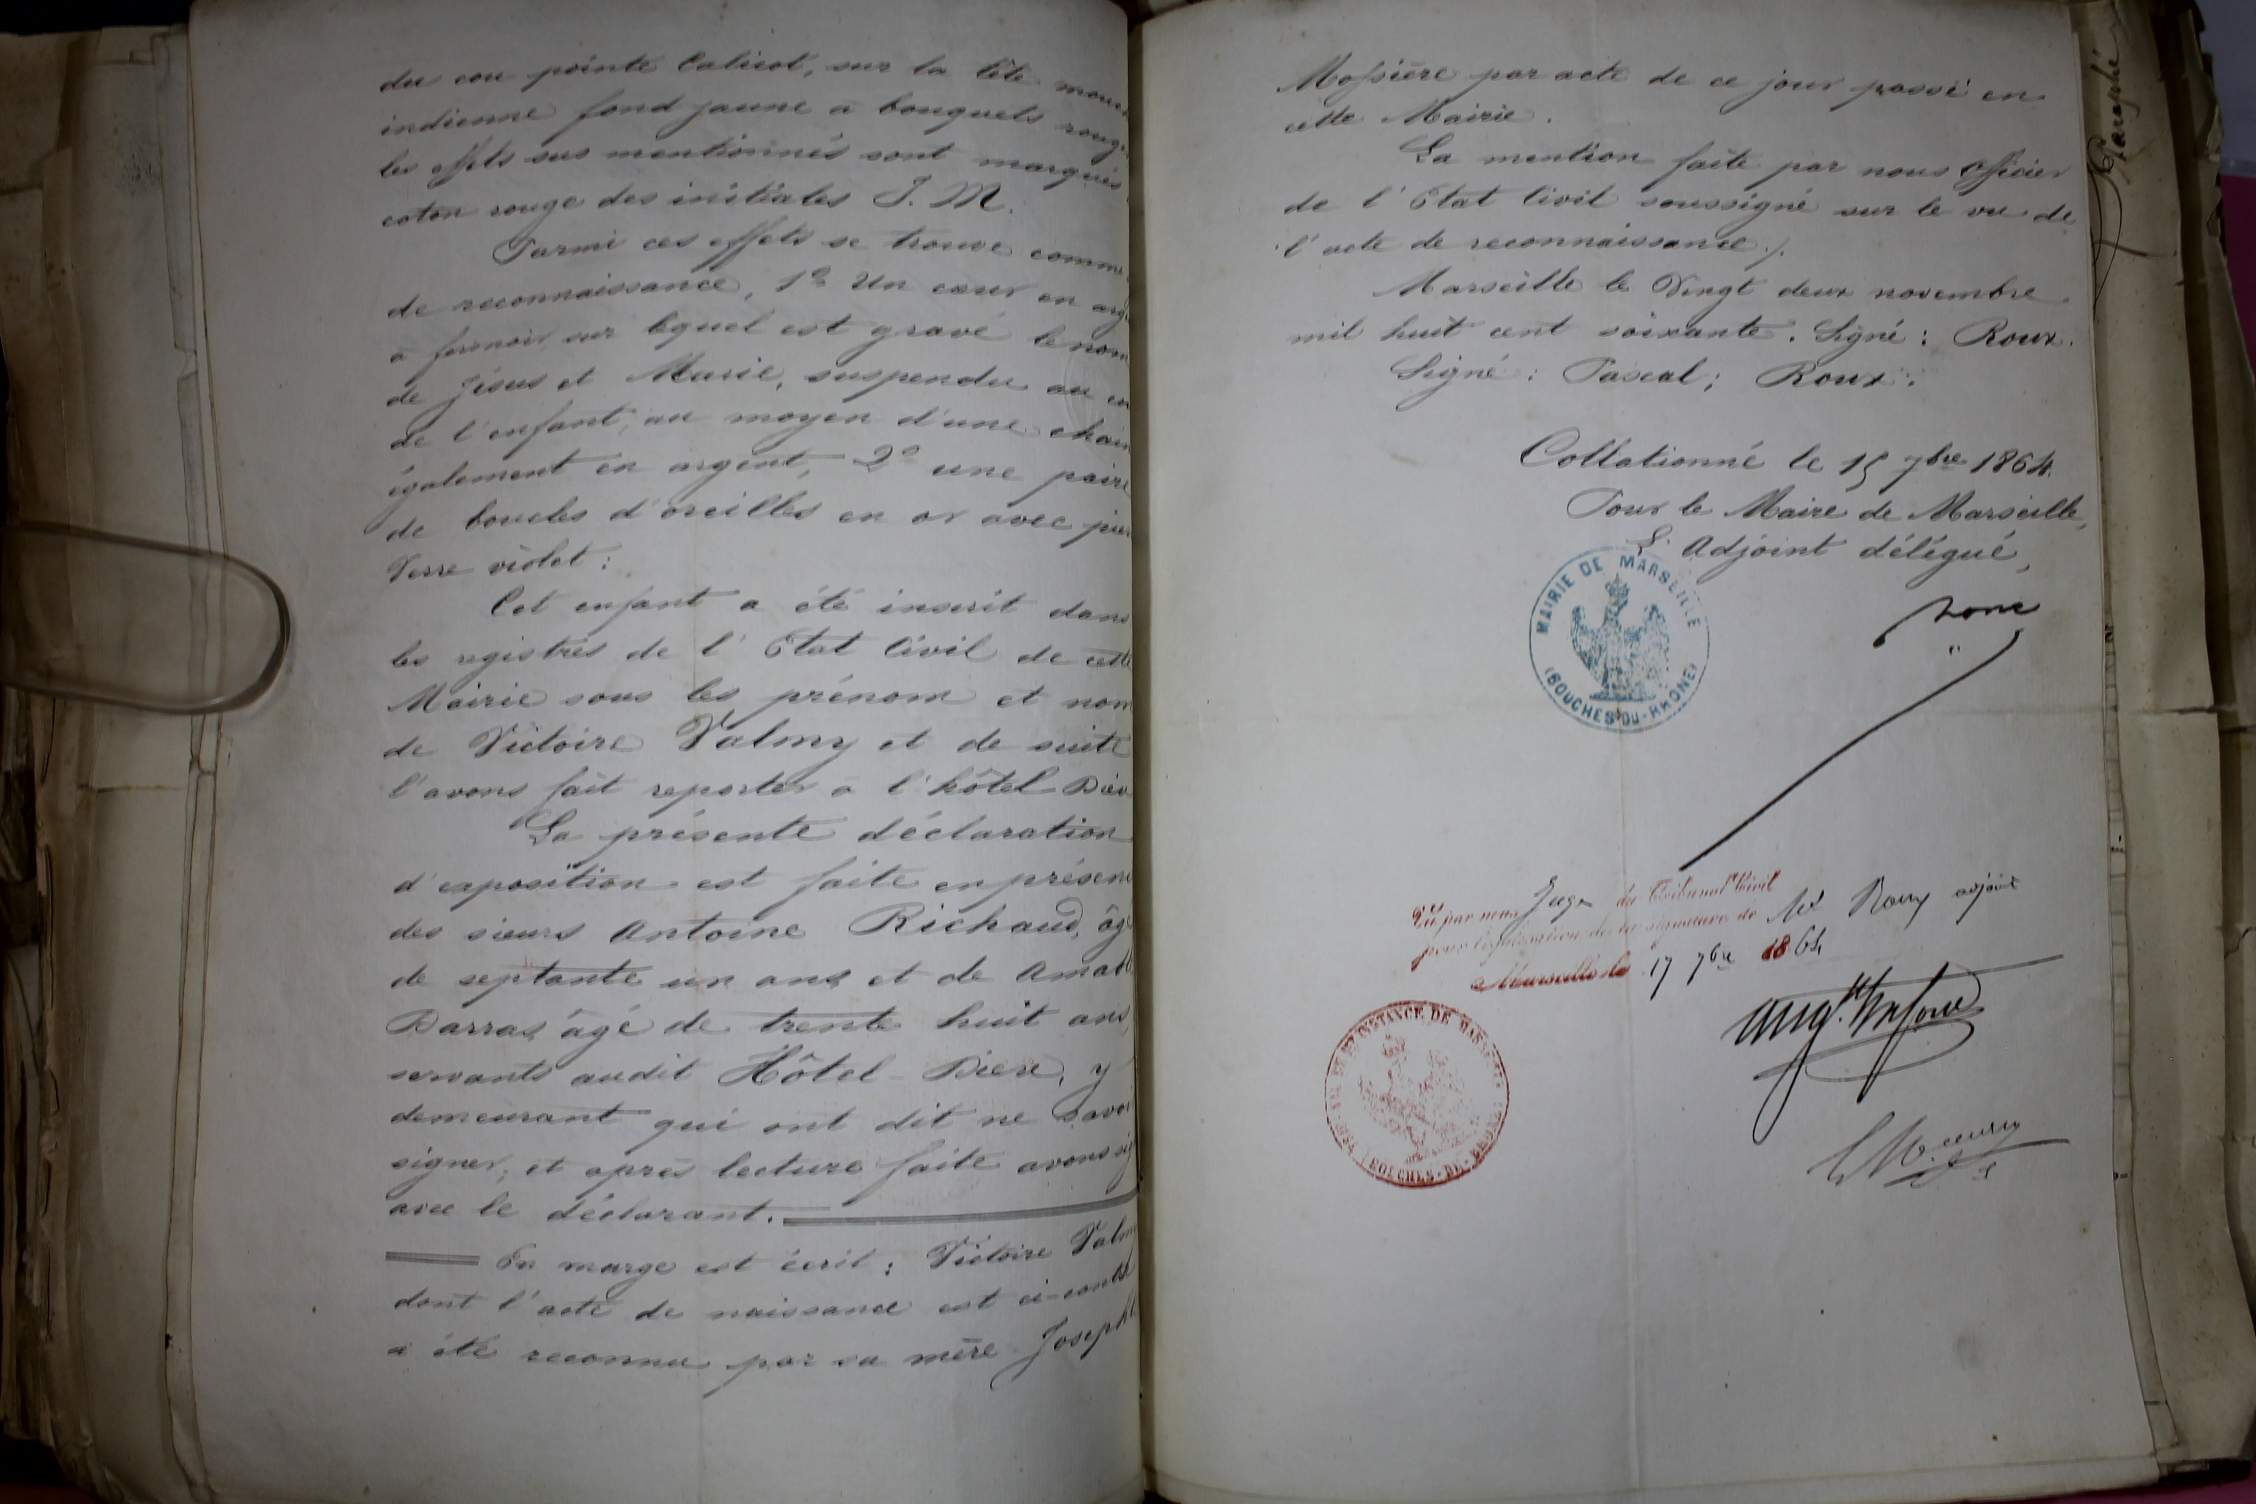 du cou pointe Calicot, sur la tête mouc
indienne fond jaune à bouquets rouge
les effets sus mentionnés sont marqués
coton rouge des initiales J. M.
Parmi ces effets se trouve comme
de reconnaissance, 1º Un cœur en arg
à fermoir sur lequel est gravé le nom
de Jésus et Marie, suspendu au co
de l'enfant, au moyen d'une chain
également en argent, 2º une paire
de boucles d'oreilles en or avec pier
Verre violet :
Cet enfant a été inscrit dans
les registres de l'Etat Civil de cette
Mairie sous les prénom et nom
de Victoire Valmy et de suite
l'avons fait reporter à l'hôtel Dieu
La présente déclaration
d'exposition est faite en présenc
des sieurs Antoine Richaud, âg
de septante un ans et de Amab
Barras âgé de trente huit ans,
servants audit Hôtel-Dieu, y
demeurant qui ont dit ne savoi
signer, et après lecture faite avons sig
avec le déclarant.
En marge est écrit : Victoire Valm
dont l'acte de naissance est ci-contre
a été reconnue par sa mère Joseph
Mossière par acte de ce jour passé en
cette Mairie.
La mention faite par nous Officier
de l'Etat Civil soussigné sur le vu de
l'acte de reconnaissance /.
Marseille le Vingt deux novembre
mil huit cent soixante. Signé : Roux.
Signé : Pascal ; Roux.
Collationné le 15 7bre 1864.
Pour le Maire de Marseille,
L'Adjoint délégué,
MAIRIE DE MARSEILLE
(BOUCHES-DU-RHONE)
Vu par nous Juge du Tribunal Civil
pour légalisation de la signature de Mr Roux adjoint
à Marseille le 17 7bre 1864
INSTANCE DE MARSEILLE
BOUCHES-DU-RHONE
Paraphé